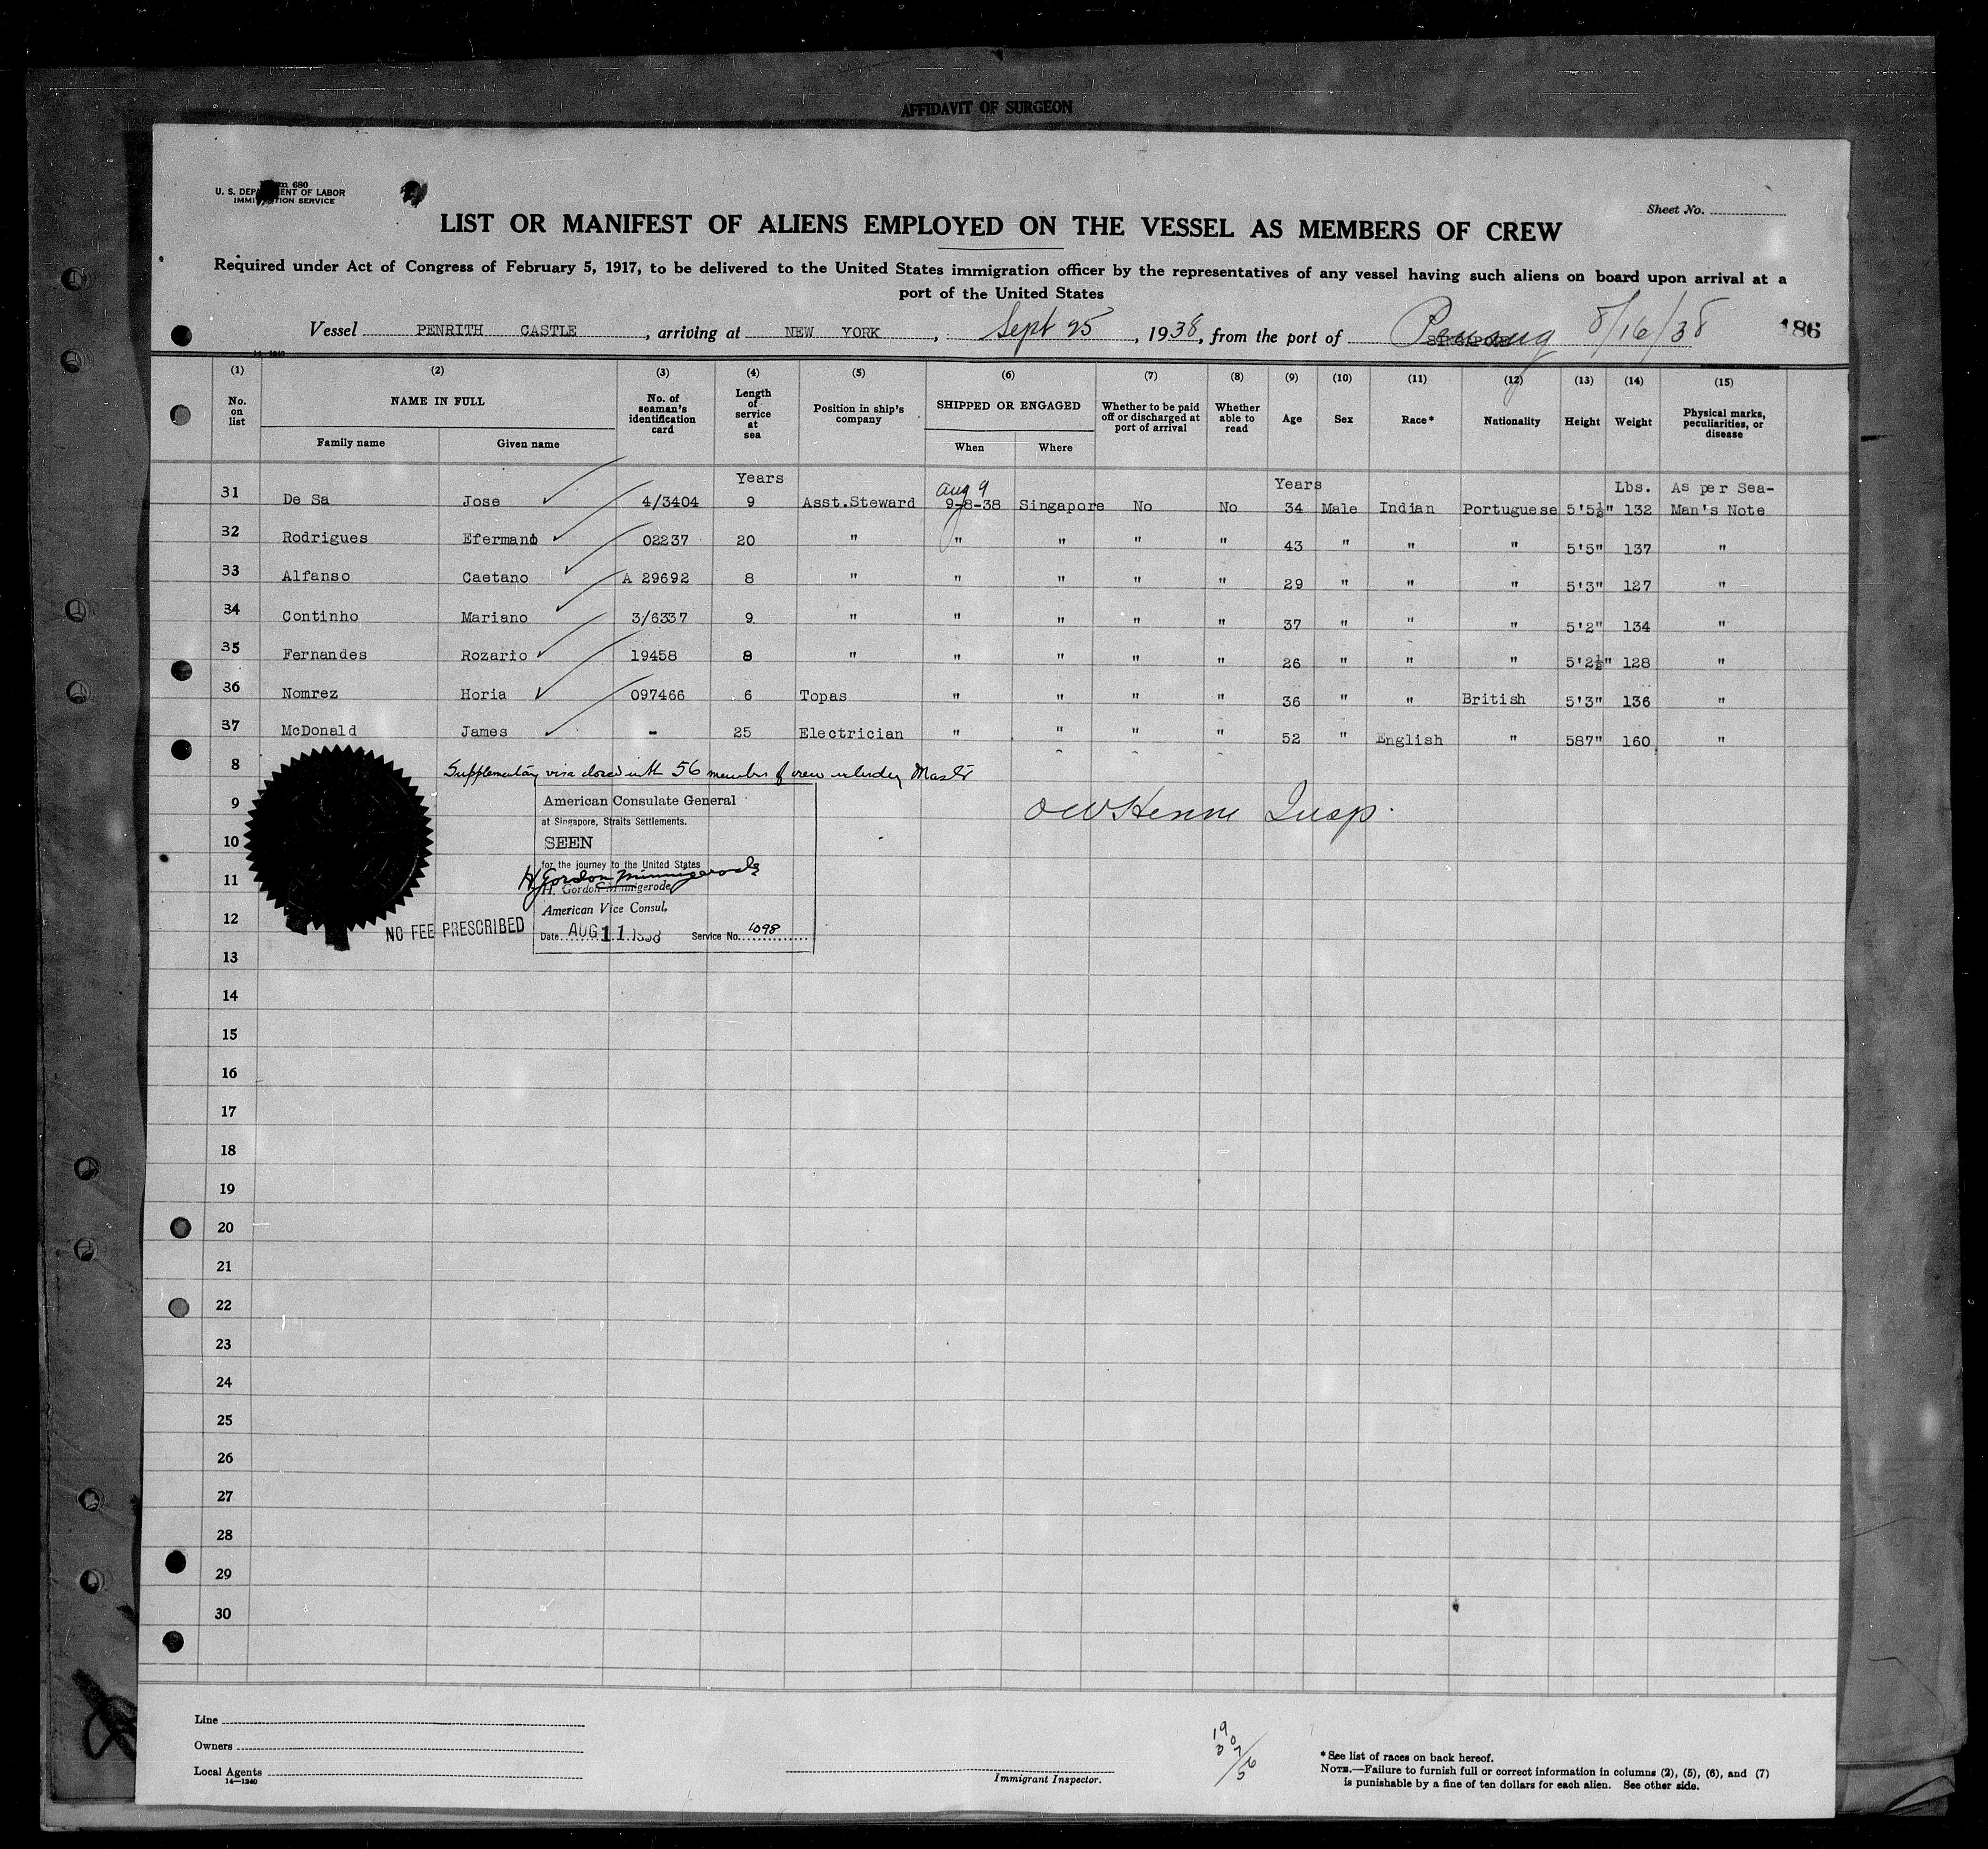 AFFIDAVIT OF SURGEON
680
U. S. DEPARTMENT OF LABOR
IMMIGRATION SERVICE
Sheet No.
LIST OR MANIFEST OF ALIENS EMPLOYED ON THE VESSEL AS MEMBERS OF CREW
Required under Act of Congress of February 5, 1917, to be delivered to the United States immigration officer by the representatives of any vessel having such aliens on board upon arrival at a
port of the United States
Vessel PENRITH CASTLE, arriving at NEW YORK, Sept 25, 1938, from the port of SINGAPORE Penang 8/16/38 186
14-1240
(1) (2) (3) (4) (5) (6) (7) (8) (9) (10) (11) (12) (13) (14) (15)
No. on list NAME IN FULL Family name Given name No. of seaman's identification card Length of service at sea Position in ship's company SHIPPED OR ENGAGED When Where Whether to be paid off or discharged at port of arrival Whether able to read Age Sex Race* Nationality Height Weight Physical marks, peculiarities, or disease
Years Aug 9 Years Lbs. As per Sea-
31 De Sa Jose 4/3404 9 Asst.Steward 9-8-38 Singapore No No 34 Male Indian Portuguese 5'5½" 132 Man's Note
32 Rodrigues Efermano 02237 20 " " " " " 43 " " " 5'5" 137 "
33 Alfanso Caetano A 29692 8 " " " " " 29 " " " 5'3" 127 "
34 Continho Mariano 3/6337 9 " " " " " 37 " " " 5'2" 134 "
35 Fernandes Rozario 19458 8 " " " " " 26 " " " 5'2½" 128 "
36 Nomrez Horia 097466 6 Topas " " " " 36 " " British 5'3" 136 "
37 McDonald James - 25 Electrician " " " " 52 " English " 587" 160 "
8 Supplementary visa closed with 56 members of crew including Master
9 American Consulate General
at Singapore, Straits Settlements.
O W Henne Insp.
10 SEEN
for the journey to the United States
11 H Gordon Minnigerode
H. Gordon Minnigerode
American Vice Consul.
12 NO FEE PRESCRIBED
Date AUG 11 1938 Service No. 1098
13
14
15
16
17
18
19
20
21
22
23
24
25
26
27
28
29
30
Line
Owners
Local Agents
14—1240
Immigrant Inspector.
19
30
7
56
*See list of races on back hereof.
NOTE.—Failure to furnish full or correct information in columns (2), (5), (6), and (7)
is punishable by a fine of ten dollars for each alien. See other side.